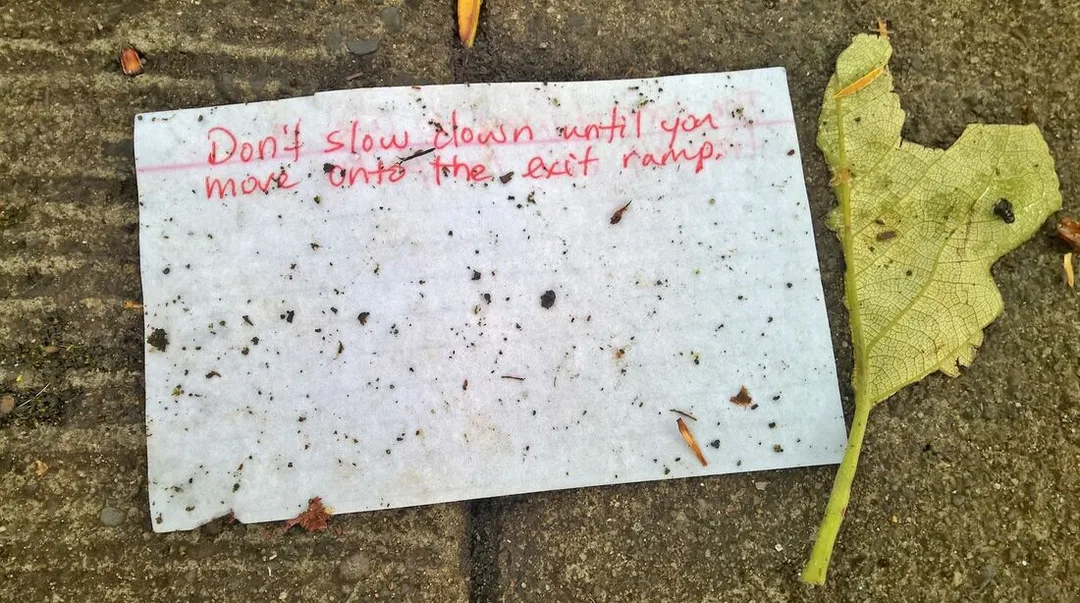 Don't slow down until you
move onto the exit ramp.